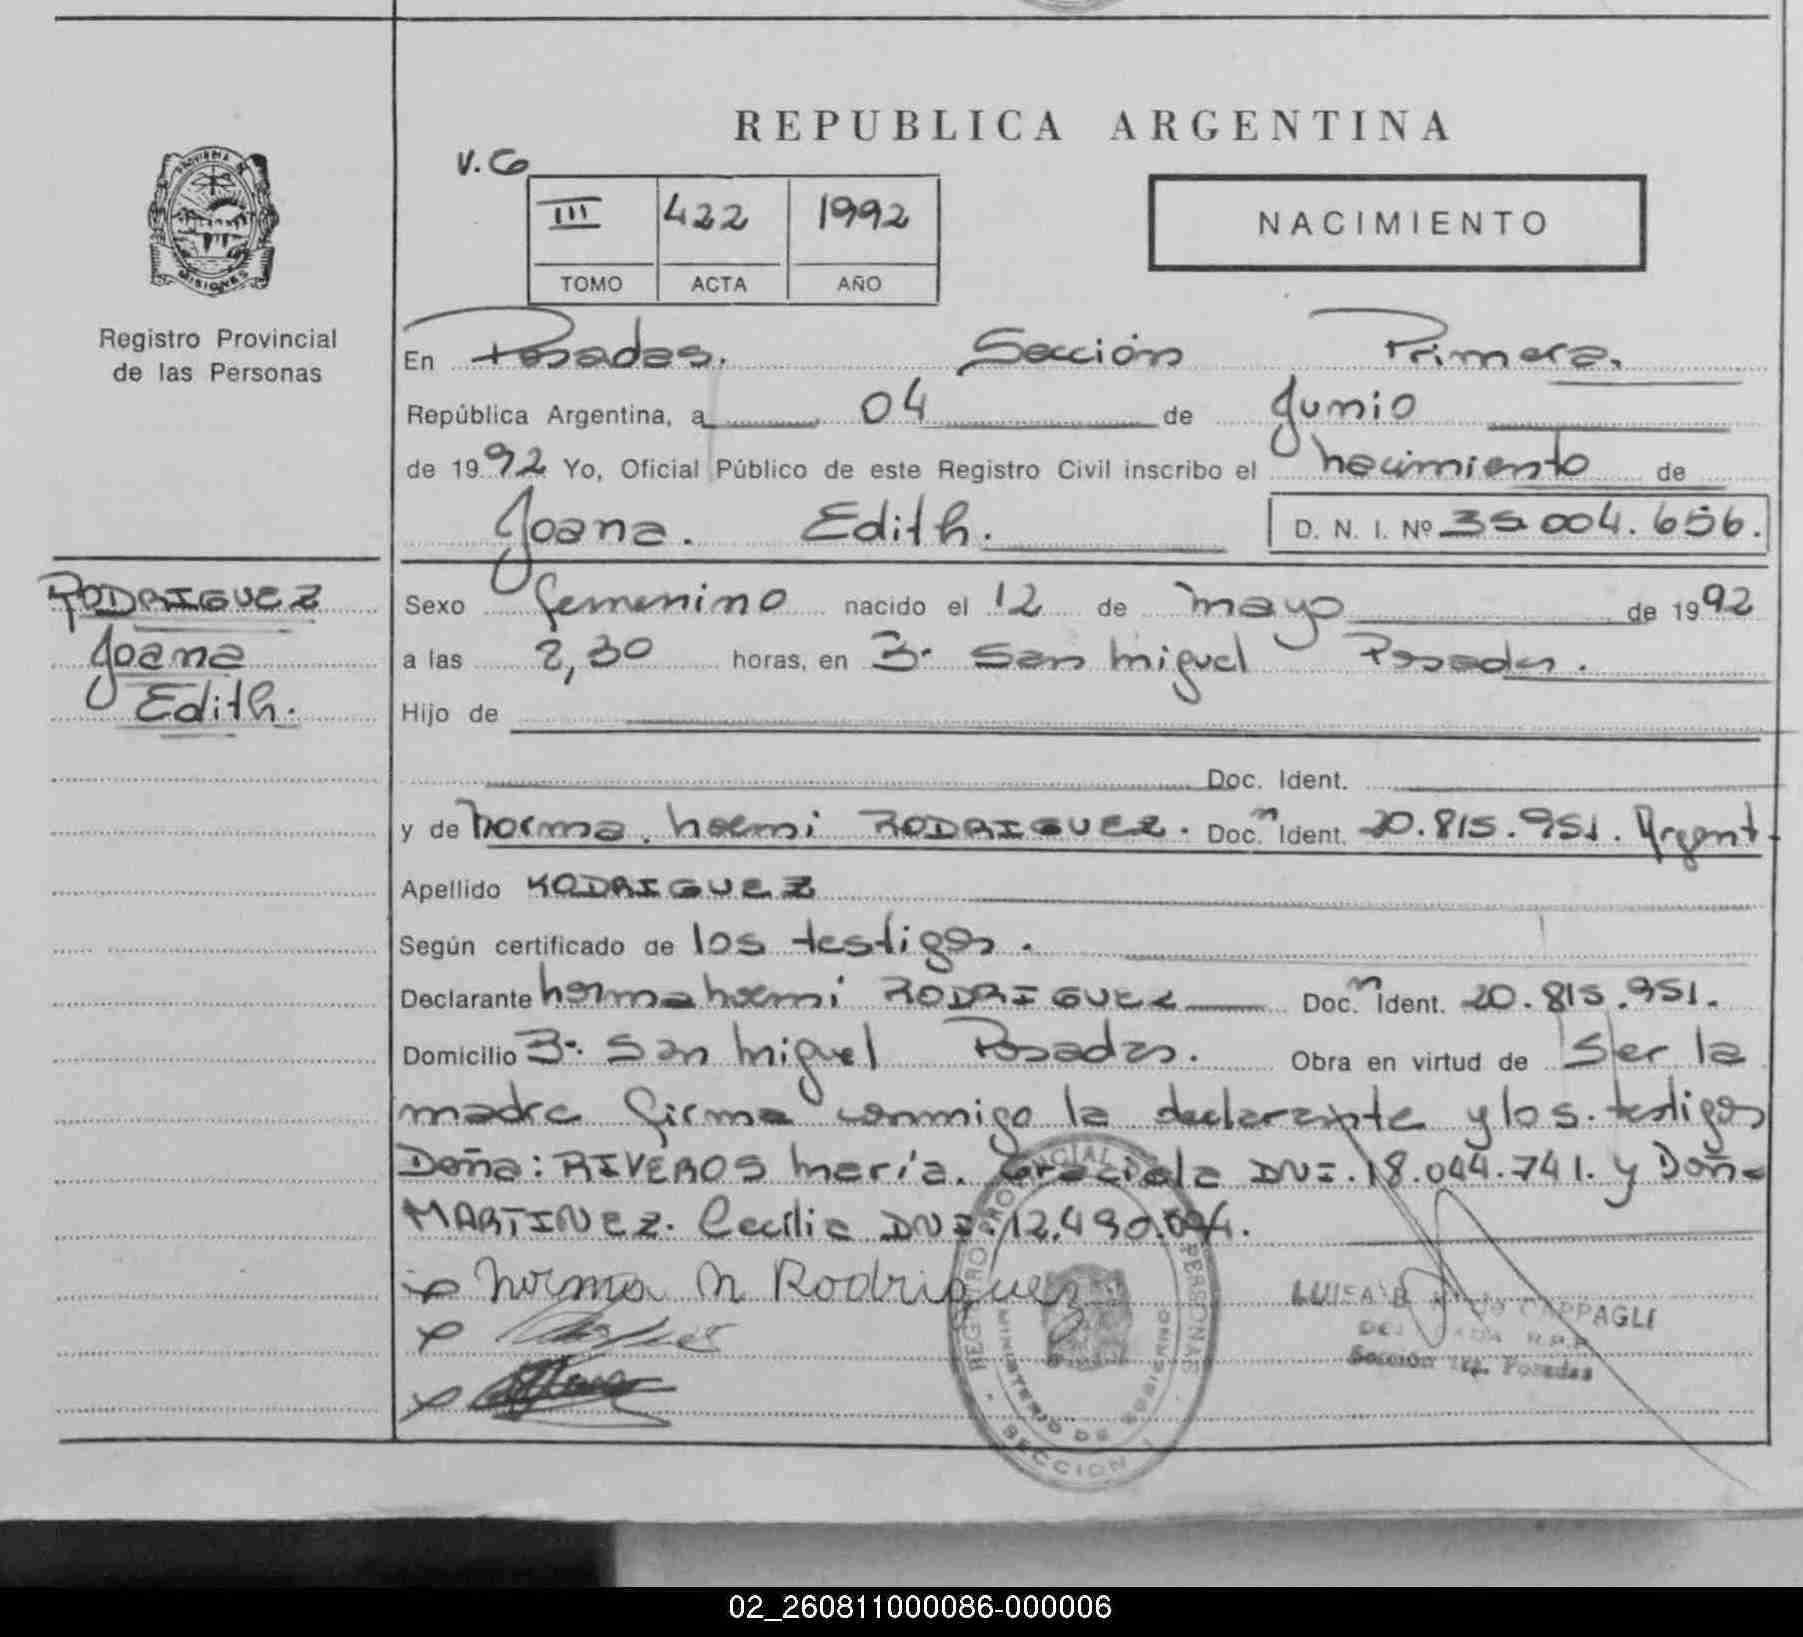 REPUBLICA ARGENTINA
V. Co
III 422 1992
TOMO ACTA AÑO
NACIMIENTO
PROVINCIA DE MISIONES
Registro Provincial
de las Personas
En Posadas. Sección Primera.
República Argentina, a 04 de Junio
de 1992 Yo, Oficial Público de este Registro Civil inscribo el nacimiento de
Joana. Edith. D. N. I. Nº 35.004.656.
RODRIGUEZ
Joana
Edith.
Sexo femenino nacido el 12 de mayo de 1992
a las 2,30 horas, en B. San Miguel Posadas.
Hijo de
Doc. Ident.
y de Norma. Noemi RODRIGUEZ. Doc. n Ident. 20.815.951. Argent.
Apellido RODRIGUEZ
Según certificado de los testigos.
Declarante Norma Noemi RODRIGUEZ Doc. n Ident. 20.815.951.
Domicilio B. San Miguel Posadas. Obra en virtud de ser la
madre firma conmigo la declarante y los testigos
Doña: RIVEROS María. Graciela DNI. 18.044.741. y Doña
MARTINEZ. Cecilia DNI. 12.490.
Norma N Rodriguez
REGISTRO PROVINCIAL DE PERSONAS
MINISTERIO DE GOBIERNO
SECCION 1
LUISA B de CAPPAGLI
R.P.P.
Sección 1ra. Posadas
02_260811000086-000006